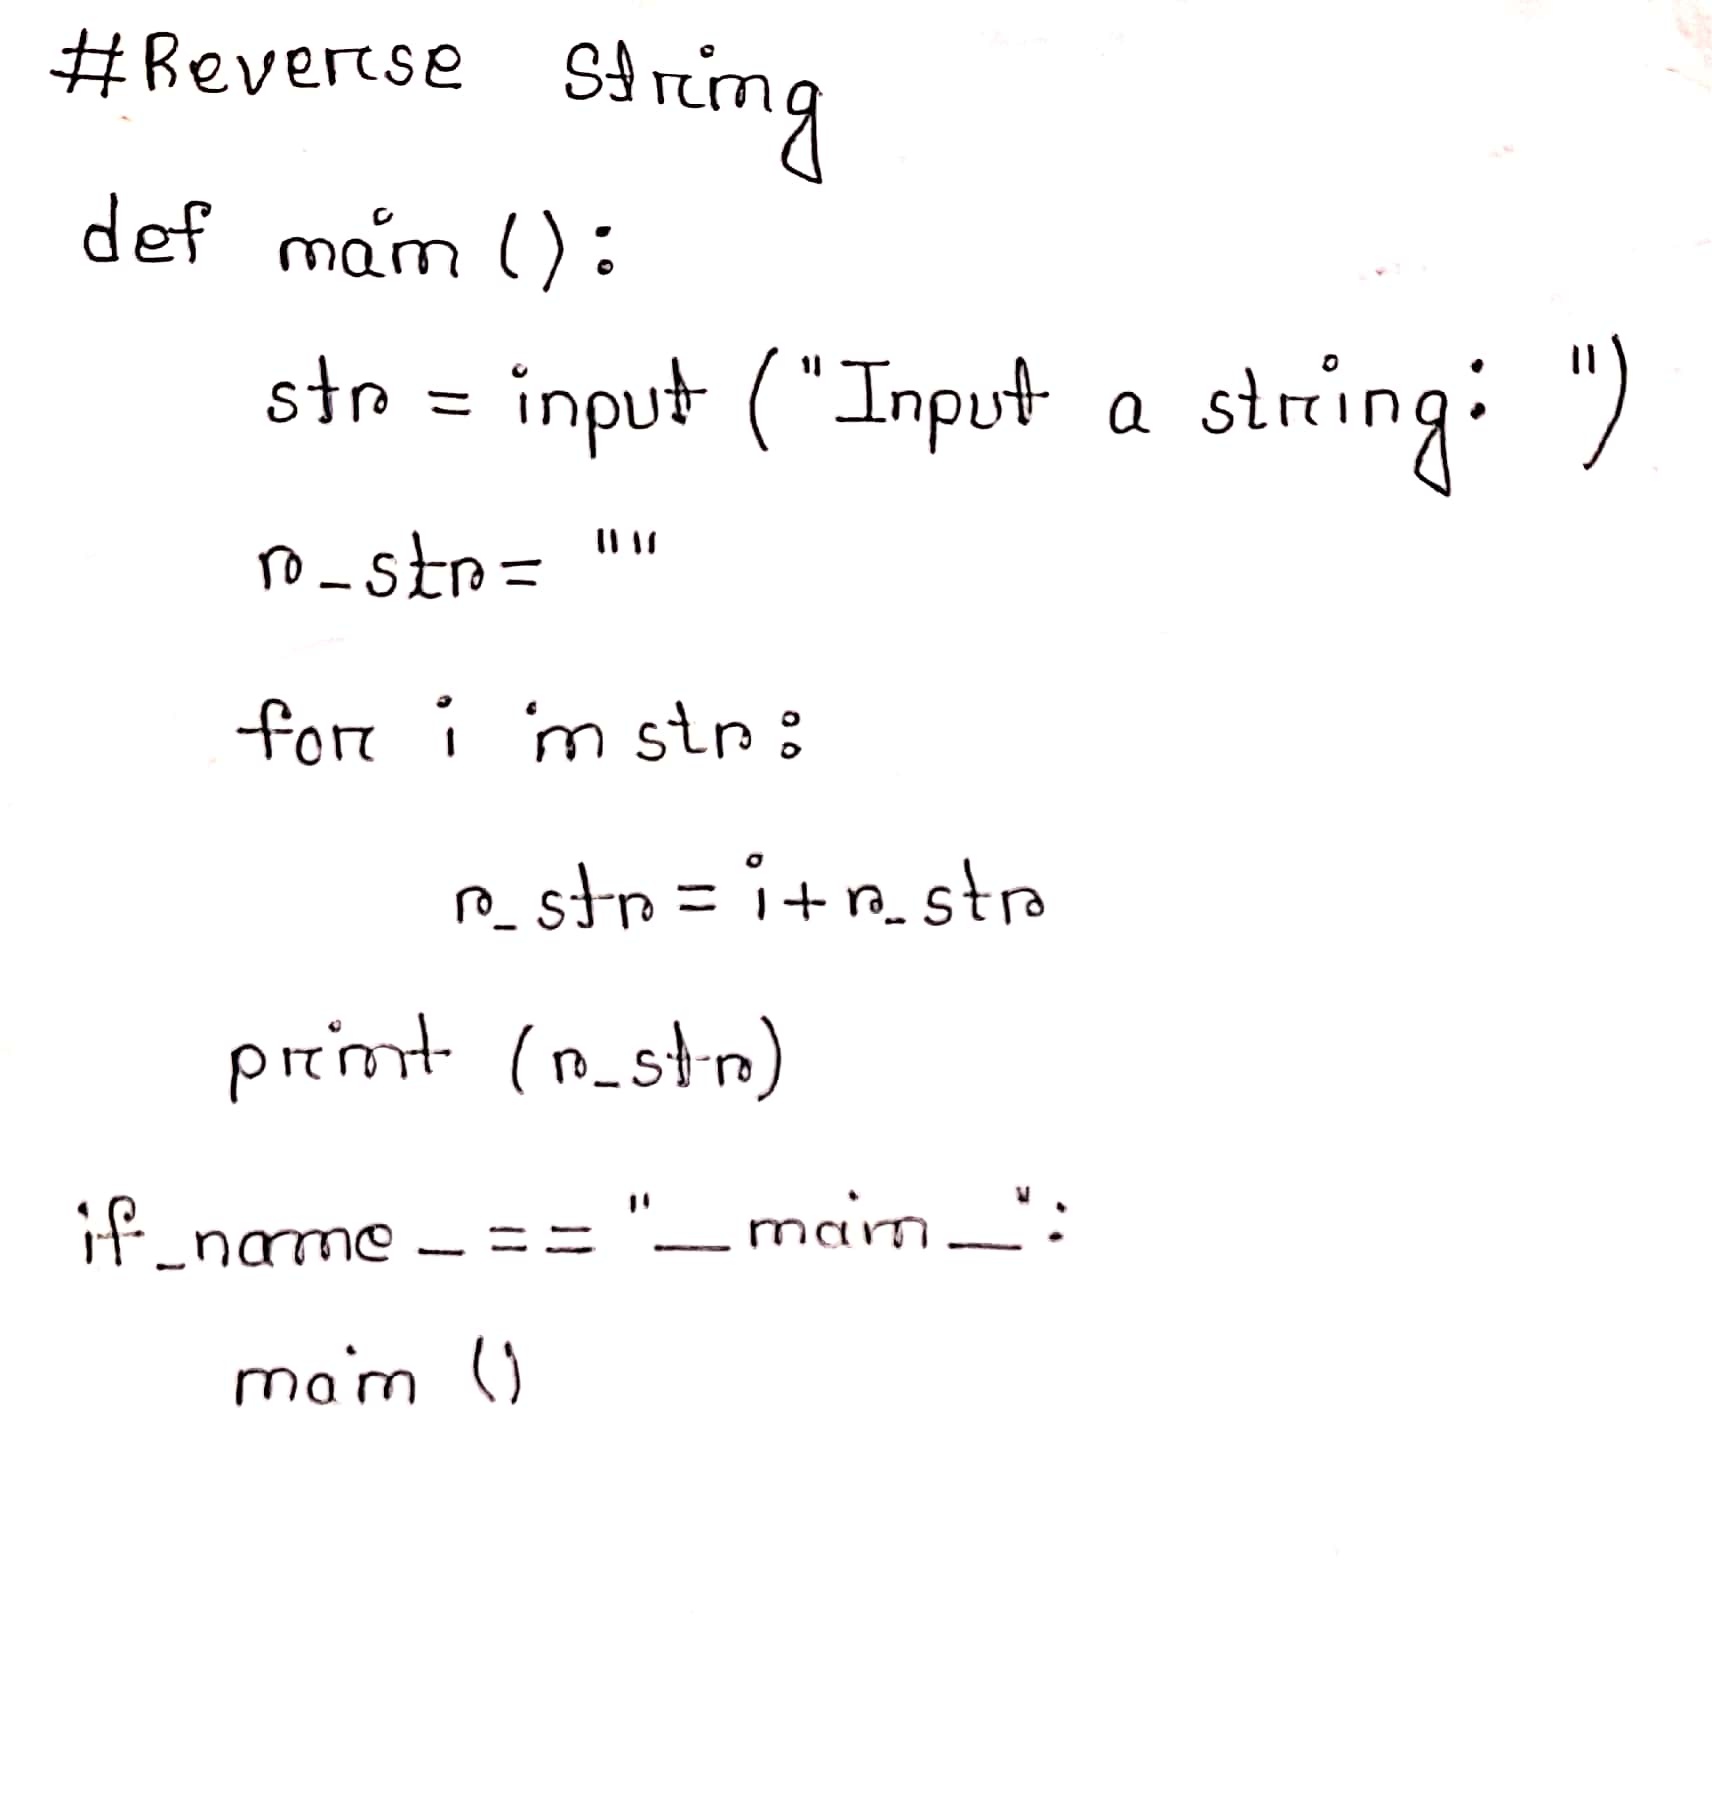 #Reverse String
def main ():
str = input ("Input a string: ")
r_str= ""
for i in str:
r_str = i+r_str
print (r_str)
if _name_ == "_main_":
main ()